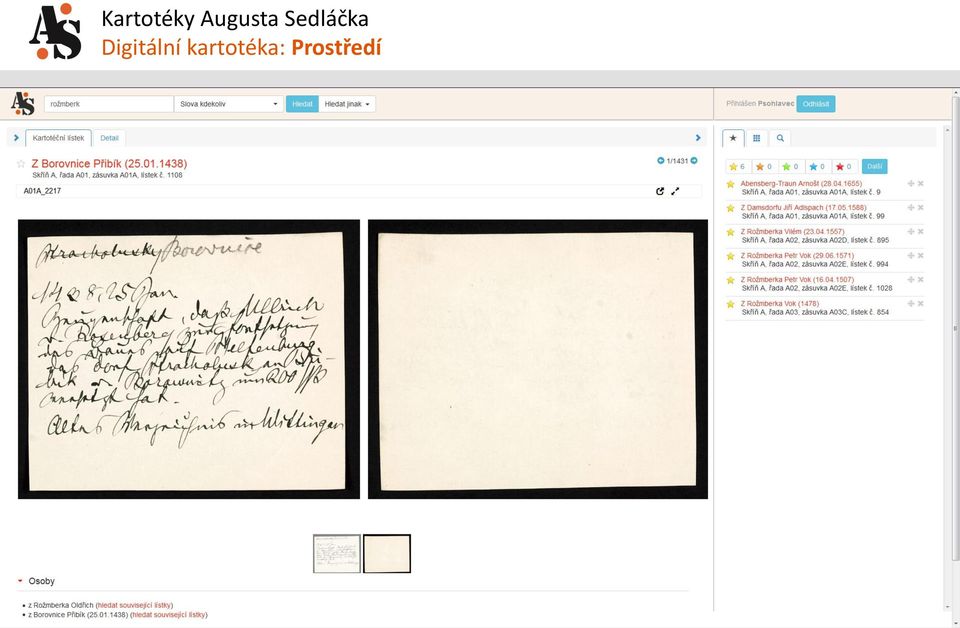 Kartotéky Augusta Sedláčka
Digitální kartotéka: Prostředí
rožmberk
Slova kdekoliv
Hledat
Hledat jinak
Přihlášen Psohlavec
Odhlásit
Kartotéční lístek
Detail
Z Borovnice Přibík (25.01.1438)
1/1431
Skříň A, řada A01, zásuvka A01A, lístek č. 1108
A01A_2217
Borovnice
1438, 25 Jan.
, daß Ullrich
v. Rosenberg
das Dorf an
bik v. um 200
hat.
Altes Verzeichnis in Wittingau
Osoby
z Rožmberka Oldřich (hledat související lístky)
z Borovnice Přibík (25.01.1438) (hledat související lístky)
6 0 0 0 0 Další
Abensberg-Traun Arnošt (28.04.1655)
Skříň A, řada A01, zásuvka A01A, lístek č. 9
Z Damsdorfu Jiří Adlspach (17.05.1588)
Skříň A, řada A01, zásuvka A01A, lístek č. 99
Z Rožmberka Vilém (23.04.1557)
Skříň A, řada A02, zásuvka A02D, lístek č. 895
Z Rožmberka Petr Vok (29.06.1571)
Skříň A, řada A02, zásuvka A02E, lístek č. 994
Z Rožmberka Petr Vok (16.04.1507)
Skříň A, řada A02, zásuvka A02E, lístek č. 1028
Z Rožmberka Vok (1478)
Skříň A, řada A03, zásuvka A03C, lístek č. 854